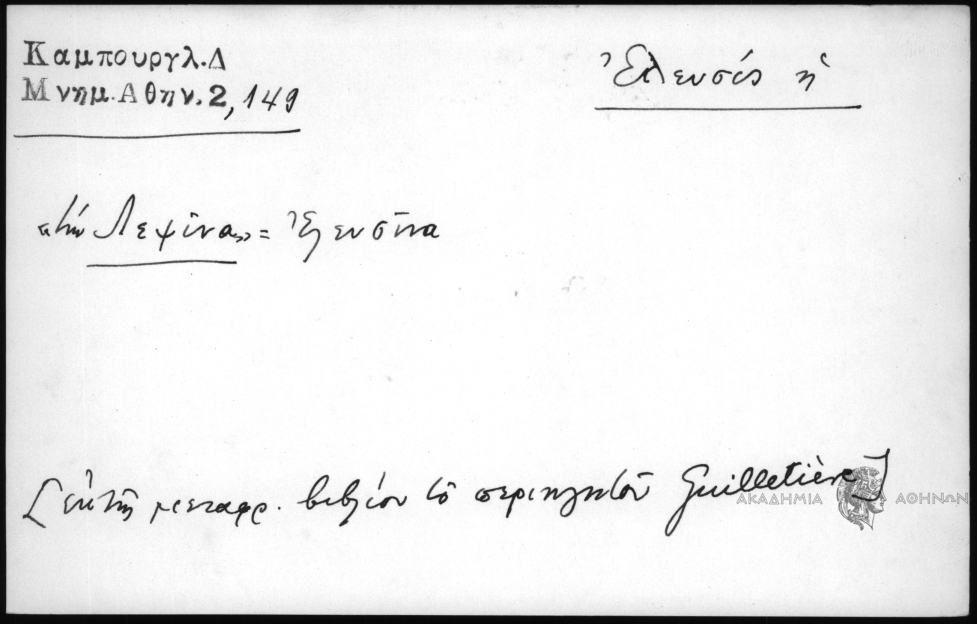 Καμπουργλ.Δ
Μνημ.Αθην.2,149
Ἐλευσίς ἡ
«τὴν Λεψίνα» = Ἐλευσῖνα
[ἐκ τῆς μεταφρ. βιβλίου τοῦ περιηγητοῦ Guilletière]
ΑΚΑΔΗΜΙΑ ΑΘΗΝΩΝ